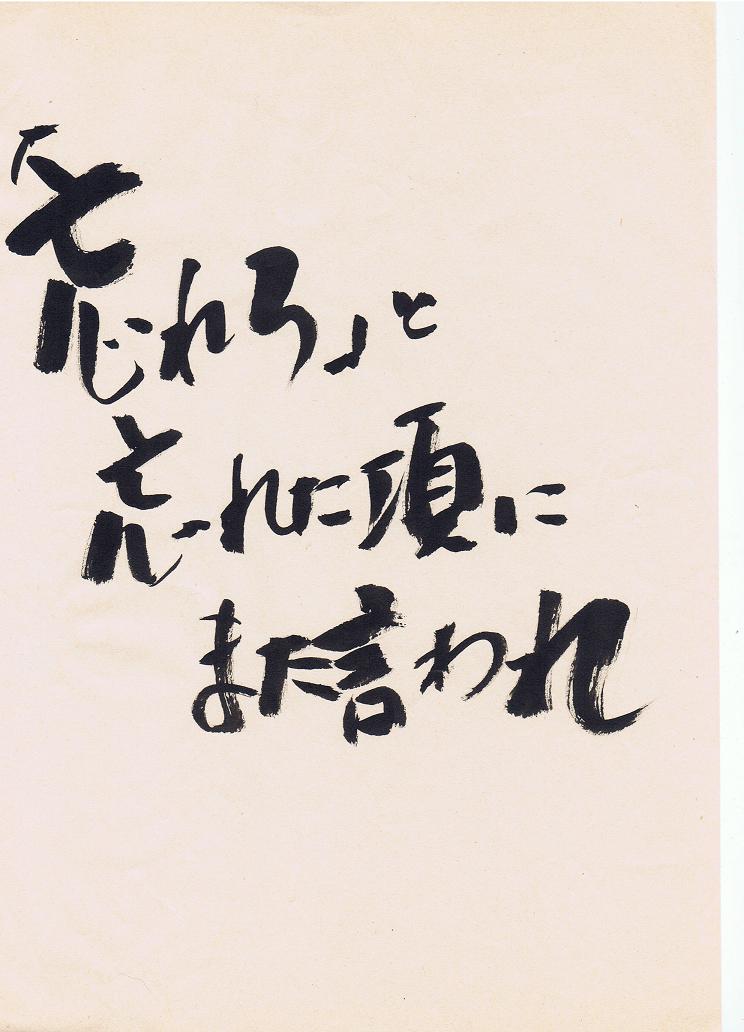 「忘れろ」と
忘れた頃に
また言われ